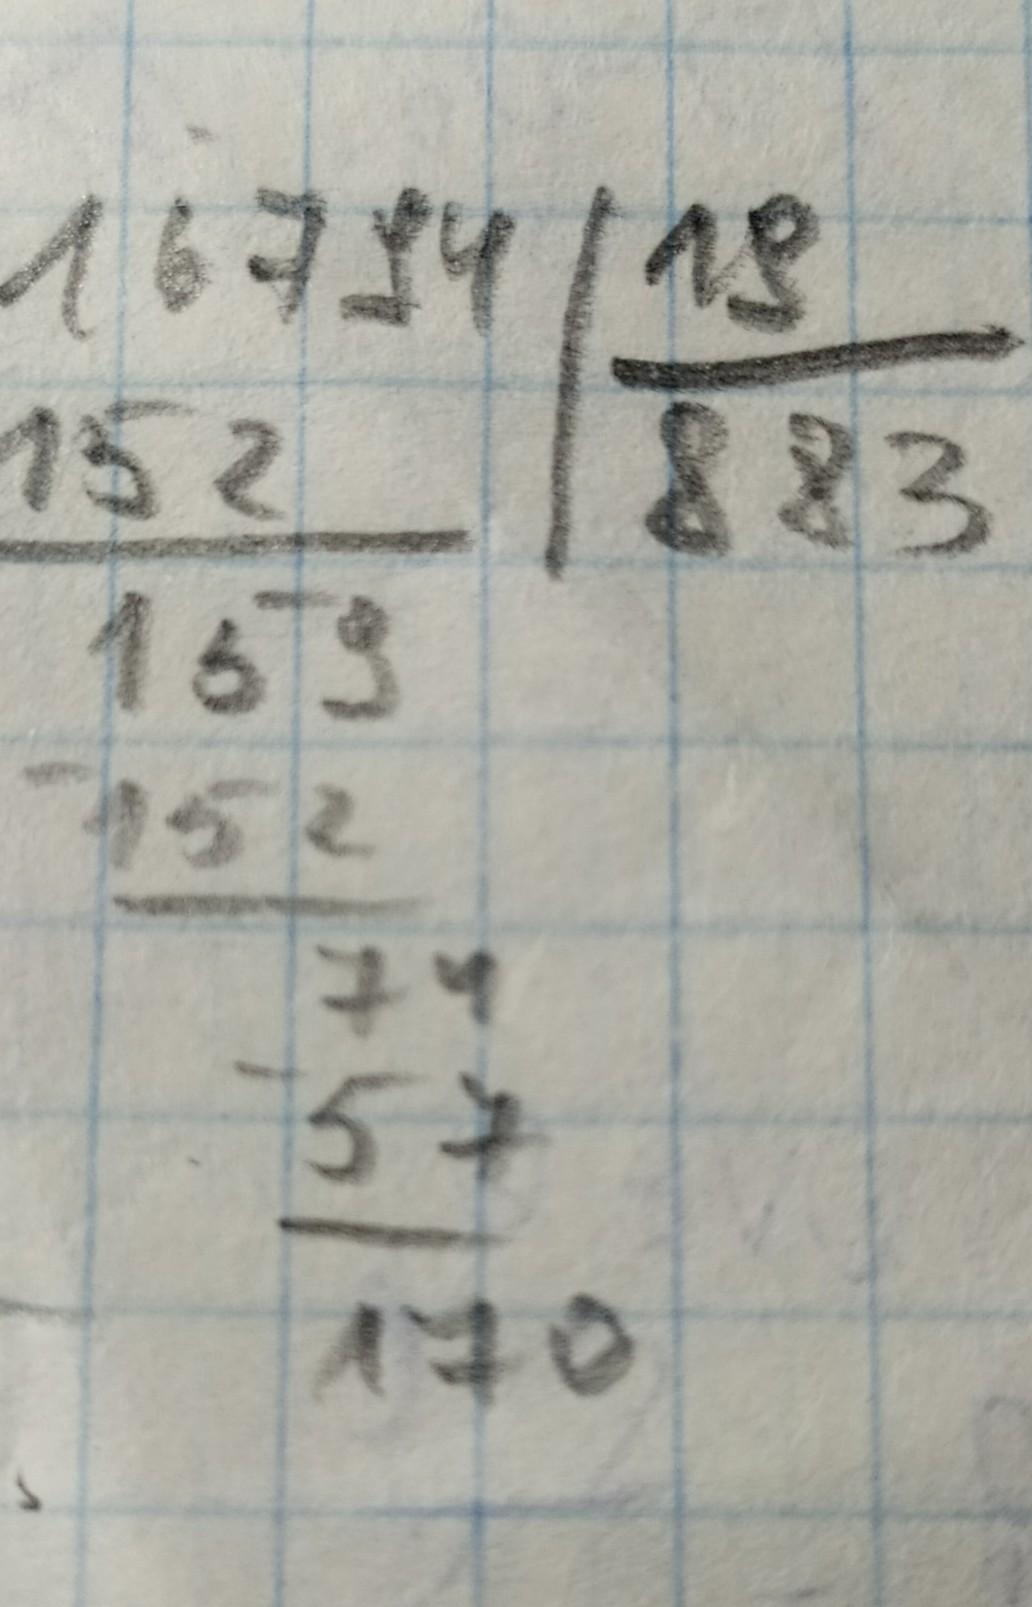 16794 | 19
152 | 883
159
-152
74
-57
170